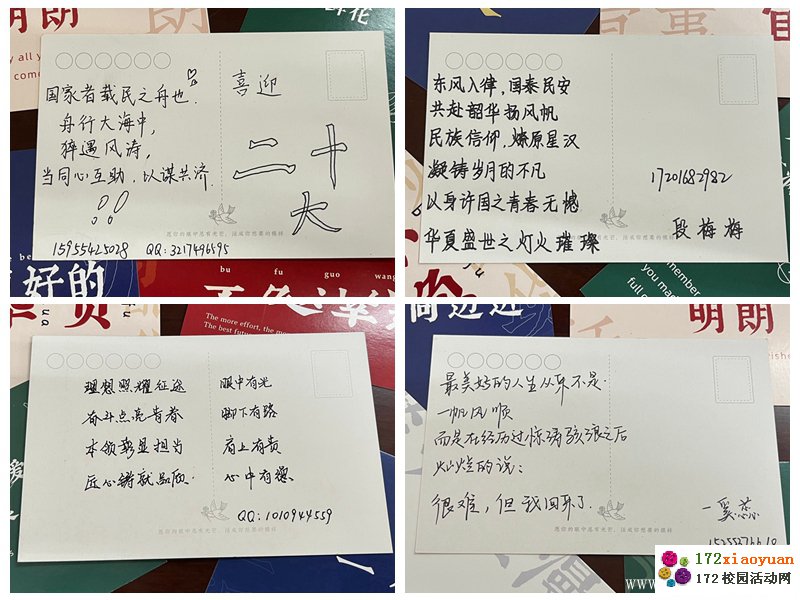 明朗
鲜花
国家者载民之舟也.
舟行大海中,
猝遇风涛,
当同心互助,以谋共济.
!!
喜迎
二十
大
愿你的眼中总有光芒,活成你想要的模样
15955425028 QQ:3217496595
东风入律,国泰民安
共赴韶华扬风帆
民族信仰,燎原星汉
凝铸岁月的不凡
以身许国之青春无憾
华夏盛世之灯火璀璨
17201682982
段梅梅
愿你的眼中总有光芒,活成你想要的模样
好的
bu fu guo wang
The more effort, the more
The best future
remember
you made
full
理想照耀征途
奋斗点亮青春
本领彰显担当
匠心铸就品质.
眼中有光
脚下有路
肩上有责
心中有德
QQ:1010944559
愿你的眼中总有光芒,活成你想要的模样
明朗
最美好的人生从来不是.
一帆风顺
而是在经历过惊涛骇浪之后
灿烂的说:
很难,但我回来了.
一奚蕊
愿你的眼中总有光芒,活成你想要的模样
172xiaoyuan
172校园活动网
www.